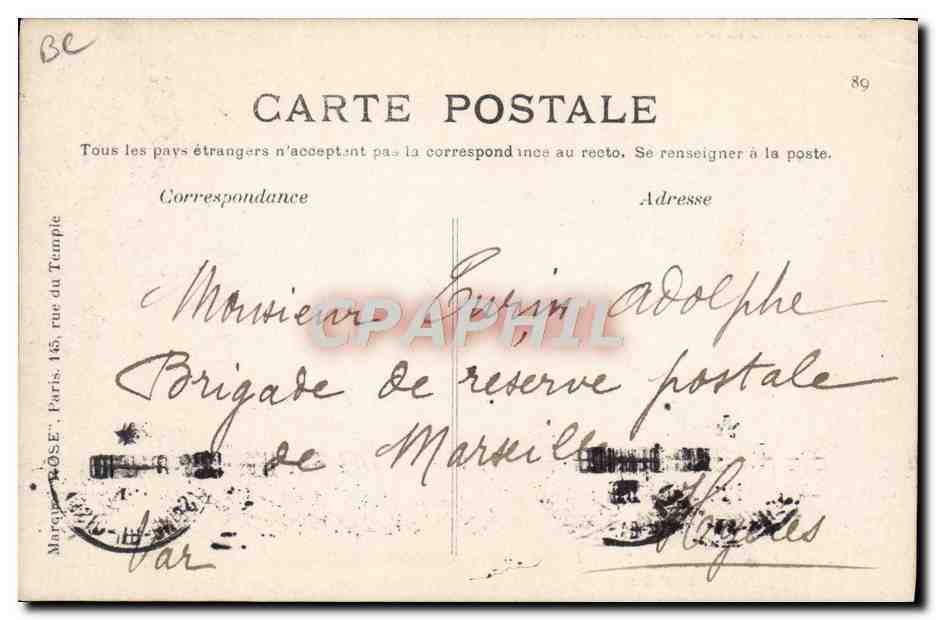 BC
89
CARTE POSTALE
Tous les pays étrangers n'acceptent pas la correspondance au recto. Se renseigner à la poste.
Correspondance
Adresse
Marque "ROSE", Paris. 145, rue du Temple
Monsieur Turin Adolphe
CPAPHIL
Brigade de reserve postale
de Marseille
Hyères
Var